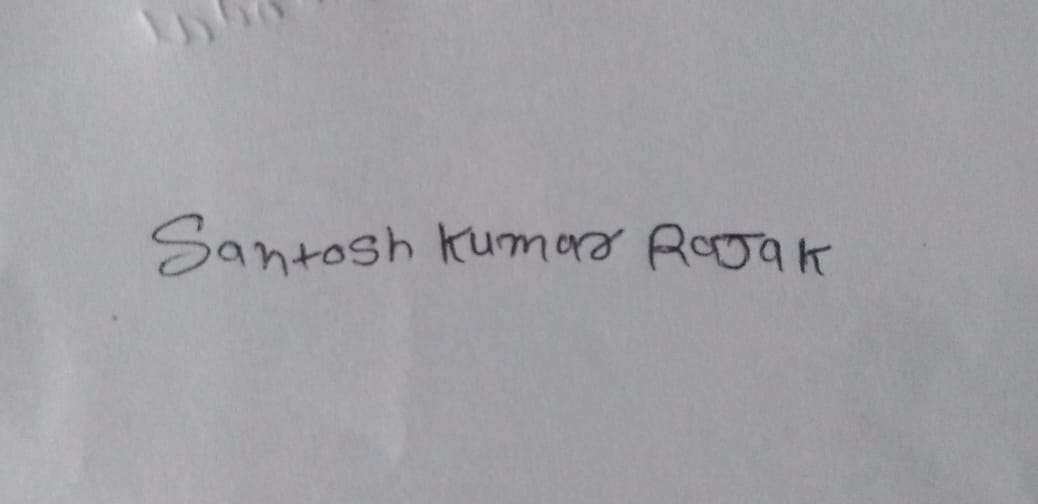 Santosh Kumar Rajak